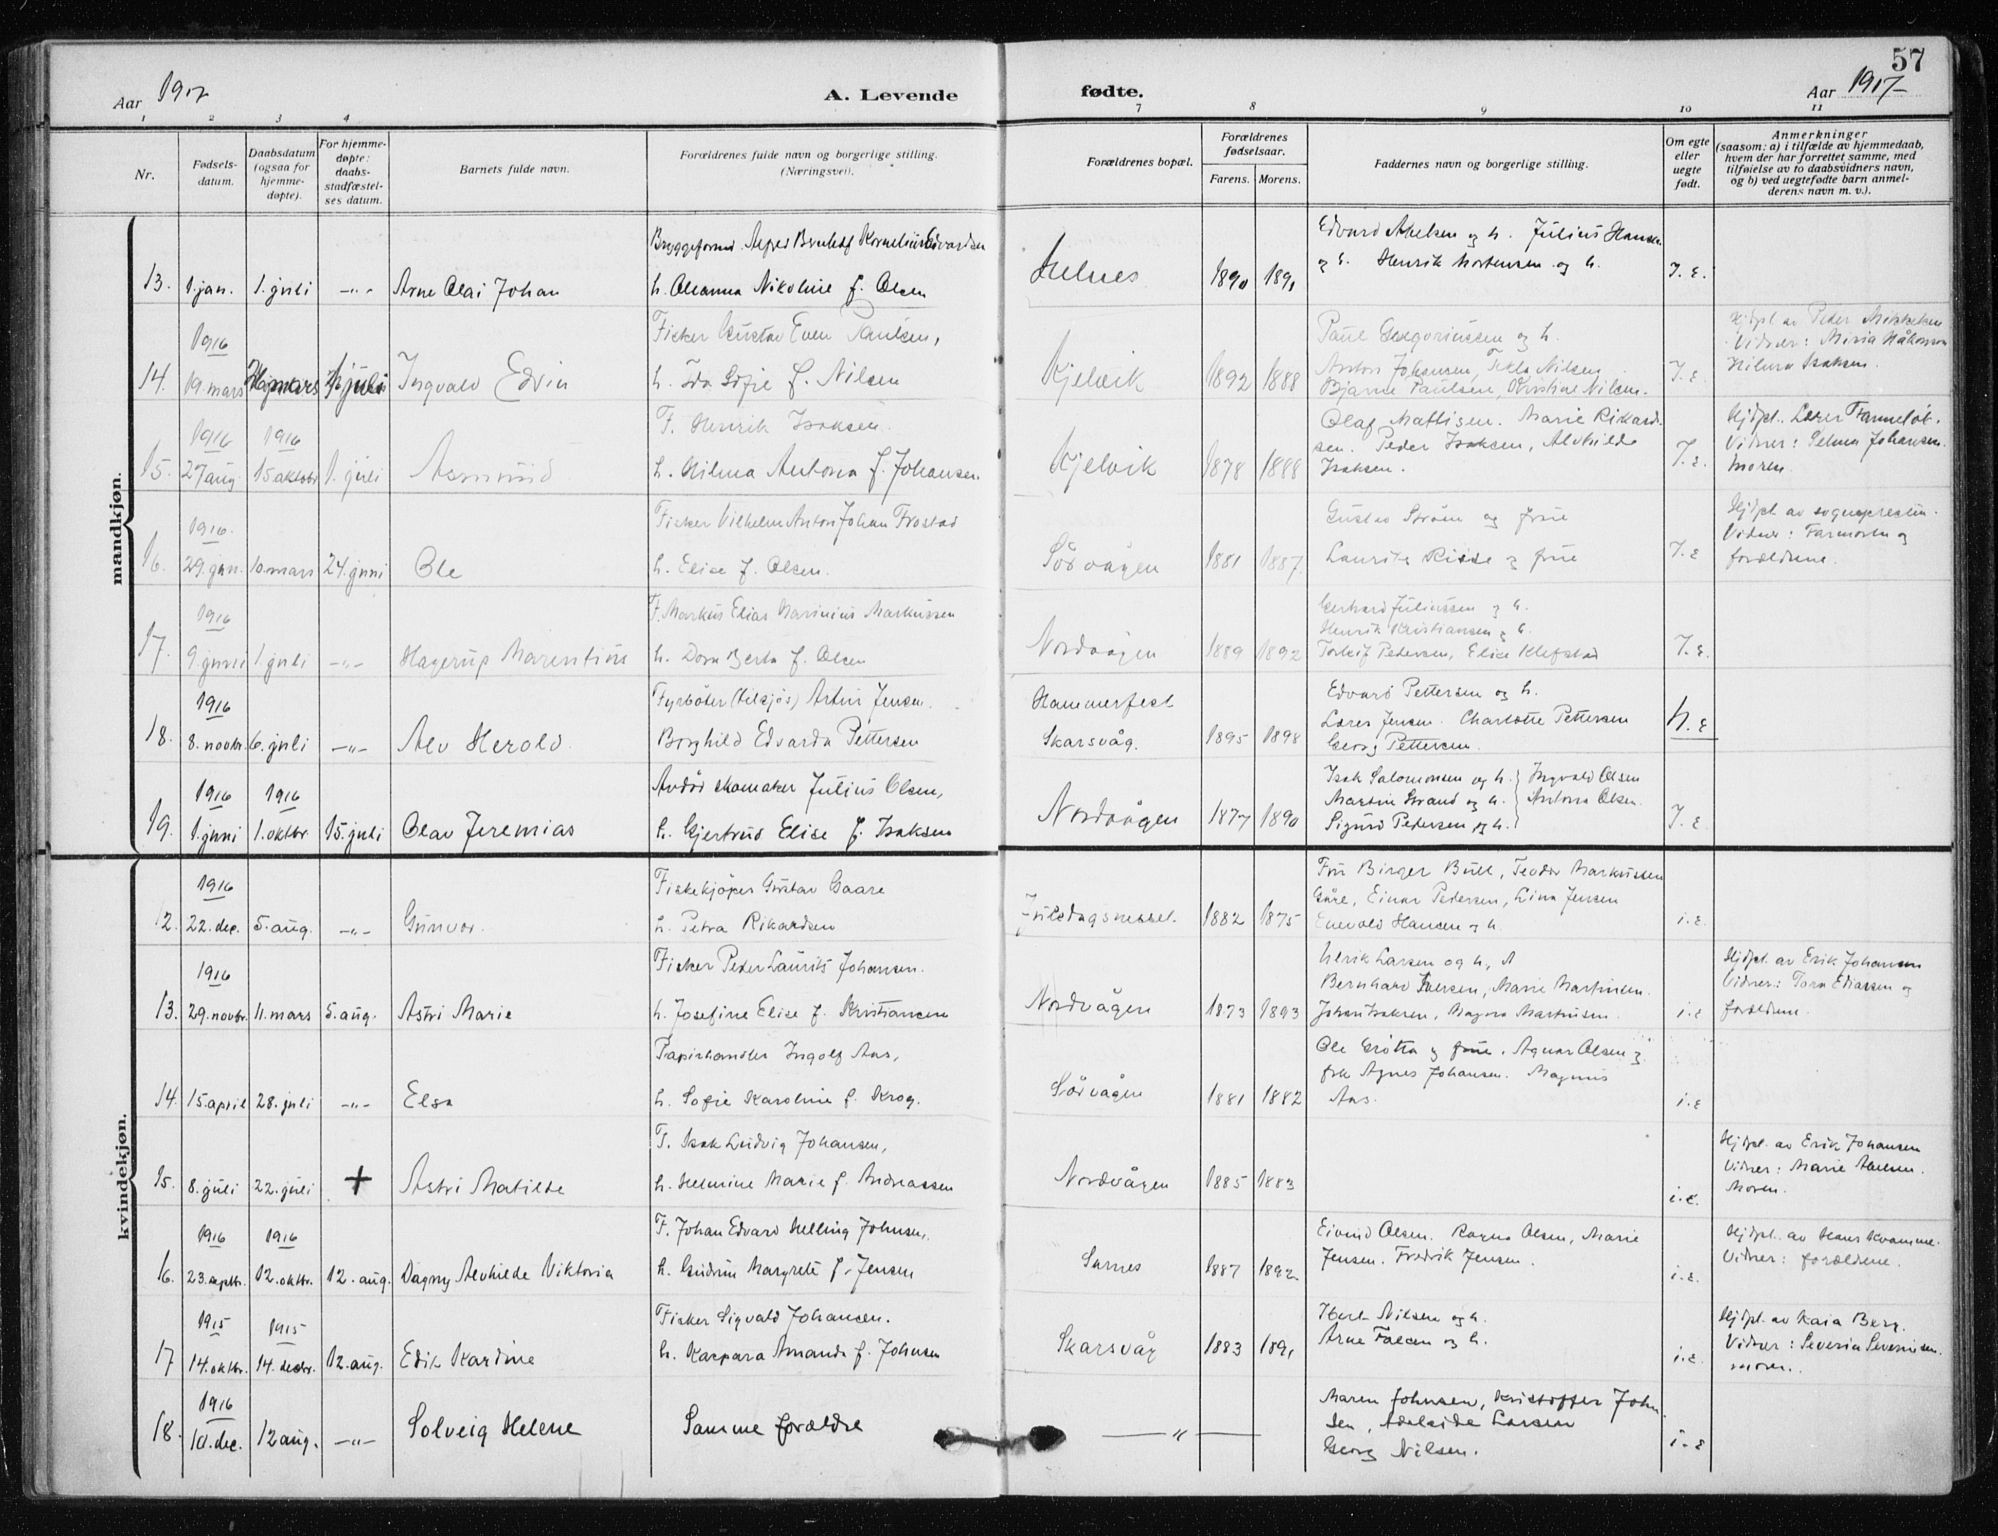 57
Aar 1917
A. Levende
fødte.
Aar 1917
1 2 3 4 7 8 9 10 11
Nr.
Fødsels-
datum.
Daabsdatum
(ogsaa for
hjemme-
døpte).
For hjemme-
døpte:
daabs-
stadfæstel-
ses datum.
Barnets fulde navn.
Forældrenes fulde navn og borgerlige stilling.
(Næringsvei).
Forældrenes bopæl.
Forældrenes
fødselsaar.
Farens. Morens.
Faddernes navn og borgerlige stilling.
Om egte
eller
uegte
født.
Anmerkninger
(saasom: a) i tilfælde av hjemmedaab,
hvem der har forrettet samme, med
tilføielse av to daabsvidners navn,
og b) ved uegtefødte barn anmel-
derens navn m. v.).
mandkjøn.
13. 1. jan. 1. juli -"- Arne Olai Johan
Edvardsen
h. Oleanna Nikoline f. Olsen
1890 1891
Edvard Abelsen og h. Julius Hansen
og h. Henrik Mortensen og h.
I. E.
1916
14. 19. mars 1. juli Ingvald Edvin
Fisker Gustav Even Paulsen,
h. Ida Sofie f. Nilsen
Kjelvik 1892 1888
Paul Gregoriussen og h.
Anton Johansen, Tekla Nilsen
Bjarne Paulsen, Kristine Nilsen.
I. E
Hjdpt. av Peder Mikkelsen
Vidner: Håkonsen
Hilma Isaksen.
1916 1916
15. 27 aug. 15 oktobr 1. juli Asmund
F. Henrik Isaksen.
h. Hilma Antona f. Johansen
Kjelvik 1878 1888
Olaf Mattisen. Marie Rikard-
sen. Peder Isaksen, Alvhilde
Isaksen.
I. E
Hjdpt. Lærer
Vidner: Selma Johansen.
Moren.
1916.
16. 29. jan. 10 mars 24. juni Ole
Fisker Vilhelm Anton Johan Frostad
h. Elise f. Olsen.
Sörvågen 1881 1887.
Gustav Ström og frue
Laurits Risse og frue
I. E
Hjdpt av sognepresten.
Vidner: Farmoren og
forældrene.
1916
17. 9. juni 1. juli -"- Hagerup Marentius
F. Markus Elias Marinius Markussen
h. Dora Berta f. Olsen
Nordvågen 1889 1892
Gerhard Juliussen og h.
Henrik Kristiansen og h.
Torleif Pedersen, Elise Klefstad
I. E.
1916
18. 8. novbr. 6. juli -"- Alv Herold.
Fyrböter (tilsjös) Artur Jensen.
Borghild Edvarda Pettersen
Hammerfest
Skarsvåg. 1895 1898
Edvard Pettersen og h.
Lærer Jensen. Charlotte Pettersen
Georg Pettersen.
U. E
1916 1916
19. 1. juni 1. oktbr. 15. juli Olav Jeremias
Avdöd skomaker Julius Olsen,
h. Gjertrud Elise f. Isaksen
Nordvågen 1877 1890
Isak Salomonsen og h. Ingvald Olsen
Martin Strand og h. Antona Olsen.
Sigurd Pedersen og h.
I. E
kvindekjøn.
1916
12. 22. dec. 5. aug. -"- Gunvor.
Fiskekjöper Gustav Gaare
h. Petra Rikardsen
1882 1875
Fru Birger Bull, Teodor Markussen
Gåre, Einar Pedersen, Lina Jensen
Enevold Hansen og h.
i. E
1916
13. 29. novbr. 11. mars 5. aug. Astri Marie
Fisker Peder Laurits Johansen.
h. Josefine Elise f. Kristiansen
Nordvågen 1873 1893
Ulrik Larsen og h,
Bernhard Iversen, Marie Martinsen.
Johan Isaksen, Magna Martinsen.
i. E
Hjdpt. av Erik Johansen
Vidner: Tora Eliassen og
forældrene.
14. 15. april 28. juli -"- Elsa
Papirhandler Ingolf Aas,
h. Sofie Karoline f. Krog.
Sörvågen 1881 1882
Ole Grötta og frue. Agnar Olsen og
frk Agnes Johansen. Magnus
Aas.
i. E
15. 8. juli 22. juli + Astri Matilde
F. Isak Ludvig Johansen,
h. Helmine Marie f. Andreassen
Nordvågen 1885 1883
i. E.
Hjdpt. av Erik Johansen
Vidner: Marie Abelsen.
Moren.
1916 1916
16. 23. septbr. 12. oktbr. 12. aug. Dagny Alvhilde Viktoria
F. Johan Edvard Helling Johnsen,
h. Gudrun Margrete f. Jensen
Sarnes 1887 1892.
Eivind Olsen. Ragna Olsen, Marie
Jensen. Fredrik Jensen.
i. E.
Hjdpt. av Hans Kvamme.
Vidner: forældrene.
1915 1915
17 14. oktbr. 14. decbr. 12. aug. Edik Kardine
Fisker Sigvald Johansen.
h. Kaspara Amanda f. Johnsen
Skarsvåg 1883 1891
Nilsen og h.
Arne Falsen og h.
i. E.
Hjdpt. av Kaia Berg.
Vidner: Severin Severinsen.
moren.
1916
18. 10. dec. 12 aug. -"- Solveig Helene
Samme forældre
—"—
Maren Johnsen, Kristoffer John-
sen, Adelaide Larsen
Georg Nilsen.
i. E